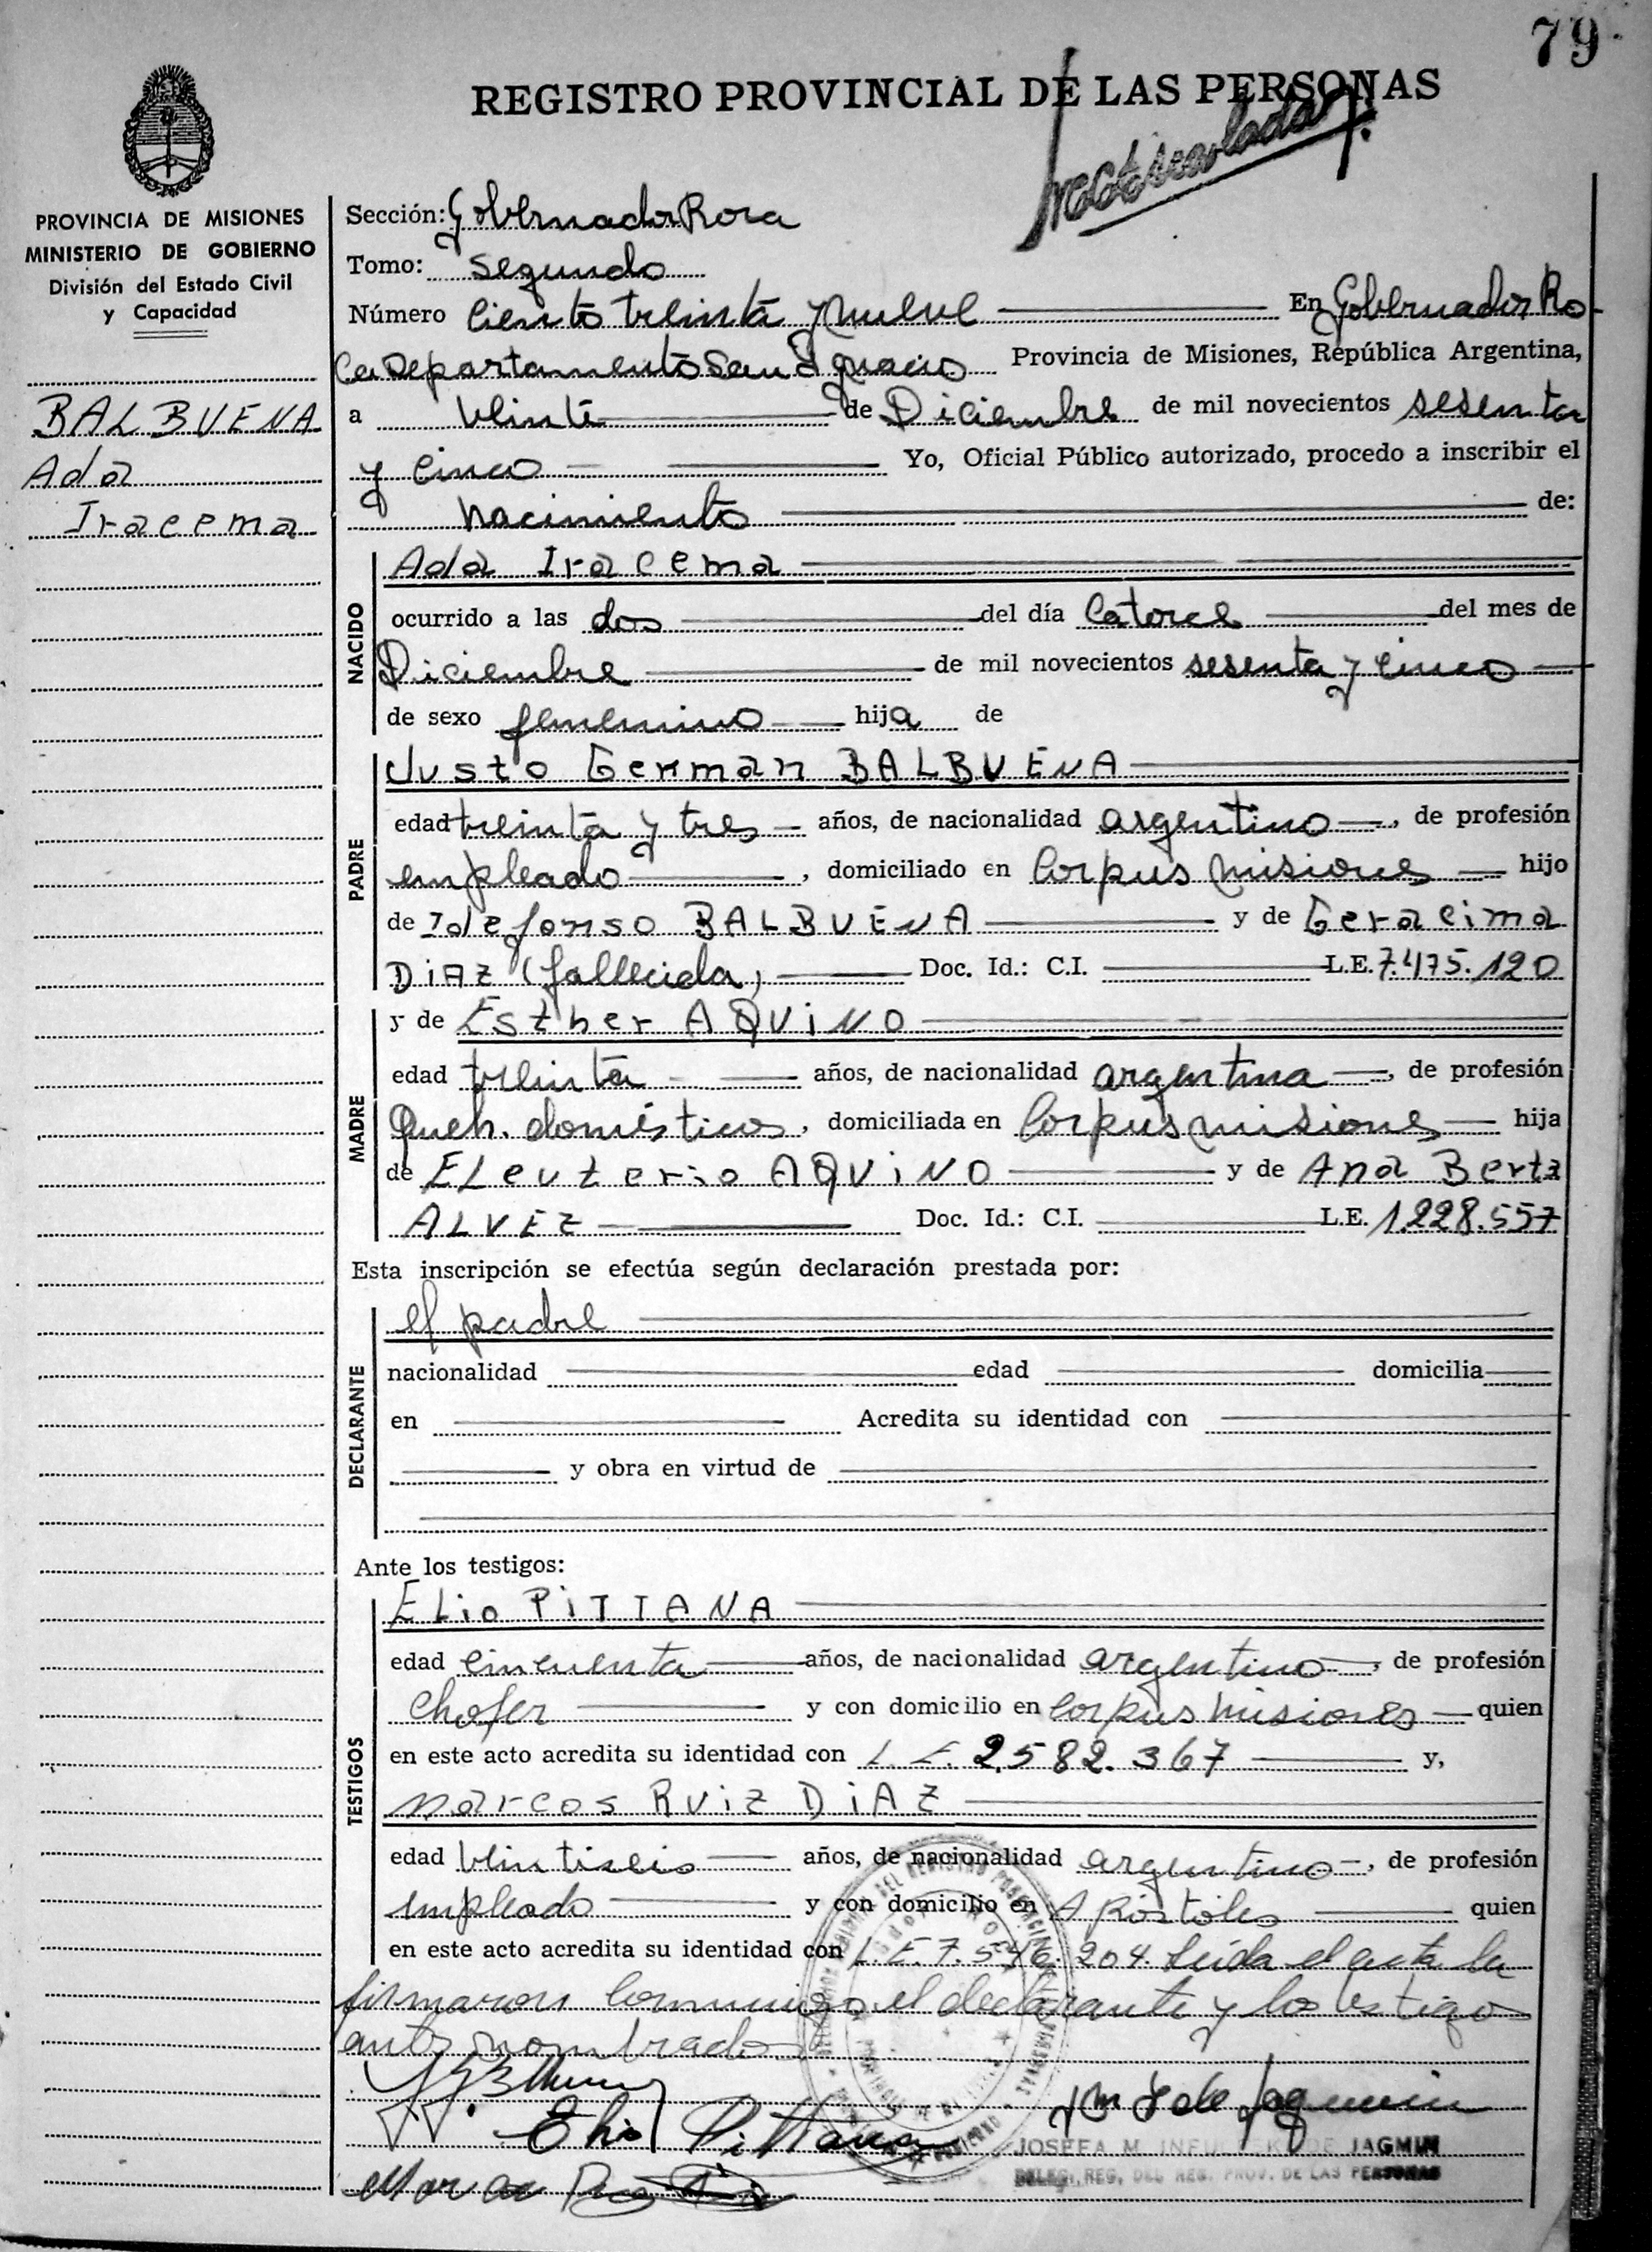 79.
REGISTRO PROVINCIAL DE LAS PERSONAS
PROVINCIA DE MISIONES
MINISTERIO DE GOBIERNO
División del Estado Civil
y Capacidad
BALBUENA
Ada
Iracema
Sección: Gobernador Roca
Tomo: Segundo
Número Ciento treinta y nueve En Gobernador Ro-
ca Departamento San Ignacio Provincia de Misiones, República Argentina,
a Veinte de Diciembre de mil novecientos sesenta
y cinco Yo, Oficial Público autorizado, procedo a inscribir el
nacimiento de:
NACIDO
Ada Iracema
ocurrido a las dos del día Catorce del mes de
Diciembre de mil novecientos sesenta y cinco
de sexo femenino hija de
PADRE
Justo German BALBUENA
edad treinta y tres años, de nacionalidad argentino, de profesión
empleado, domiciliado en Corpus misiones hijo
de Idefonso BALBUENA y de Geracima
DIAZ (fallecida) Doc. Id.: C.I. L.E. 7.475.120
MADRE
y de Esther AQUINO
edad treinta años, de nacionalidad argentina, de profesión
Queh. domésticos, domiciliada en Corpus misiones hija
de ELeuterio AQUINO y de Ana Berta
ALVEZ Doc. Id.: C.I. L.E. 1.228.557
Esta inscripción se efectúa según declaración prestada por:
DECLARANTE
el padre
nacionalidad edad domicilia
en Acredita su identidad con
y obra en virtud de
Ante los testigos:
TESTIGOS
ELio PITTANA
edad cincuenta años, de nacionalidad argentino, de profesión
chofer y con domicilio en Corpus misiones quien
en este acto acredita su identidad con L.E. 2.582.367 y,
Marcos RUIZ DIAZ
edad Veintiseis años, de nacionalidad argentino, de profesión
empleado y con domicilio en Apóstoles quien
en este acto acredita su identidad con L.E. 7.546.204. Leida el acta la
firmaron conmigo el declarante y los testigos
antes nombrados
Elio Pittana
JOSEFA M. DE JAGMIN
DELEG. REG. DEL REG. PROV. DE LAS PERSONAS